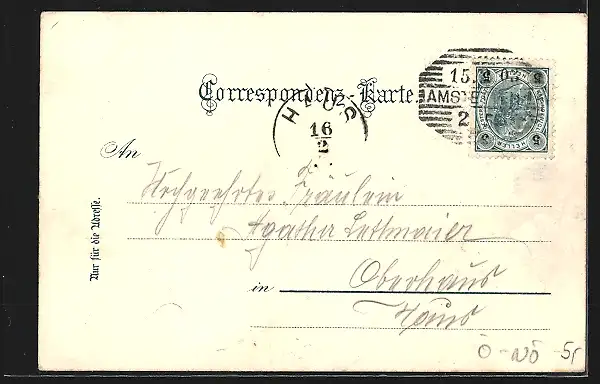 Correspondenz-Karte.
15. 02
AMSTE
2
HAUS
16
2
5 5
HELLER
5 5
An
Hochgeehrtes Fräulein
Agatha Lettmaier
in Oberhaus
Haus
Nur für die Adresse.
Ö-NÖ-5,-